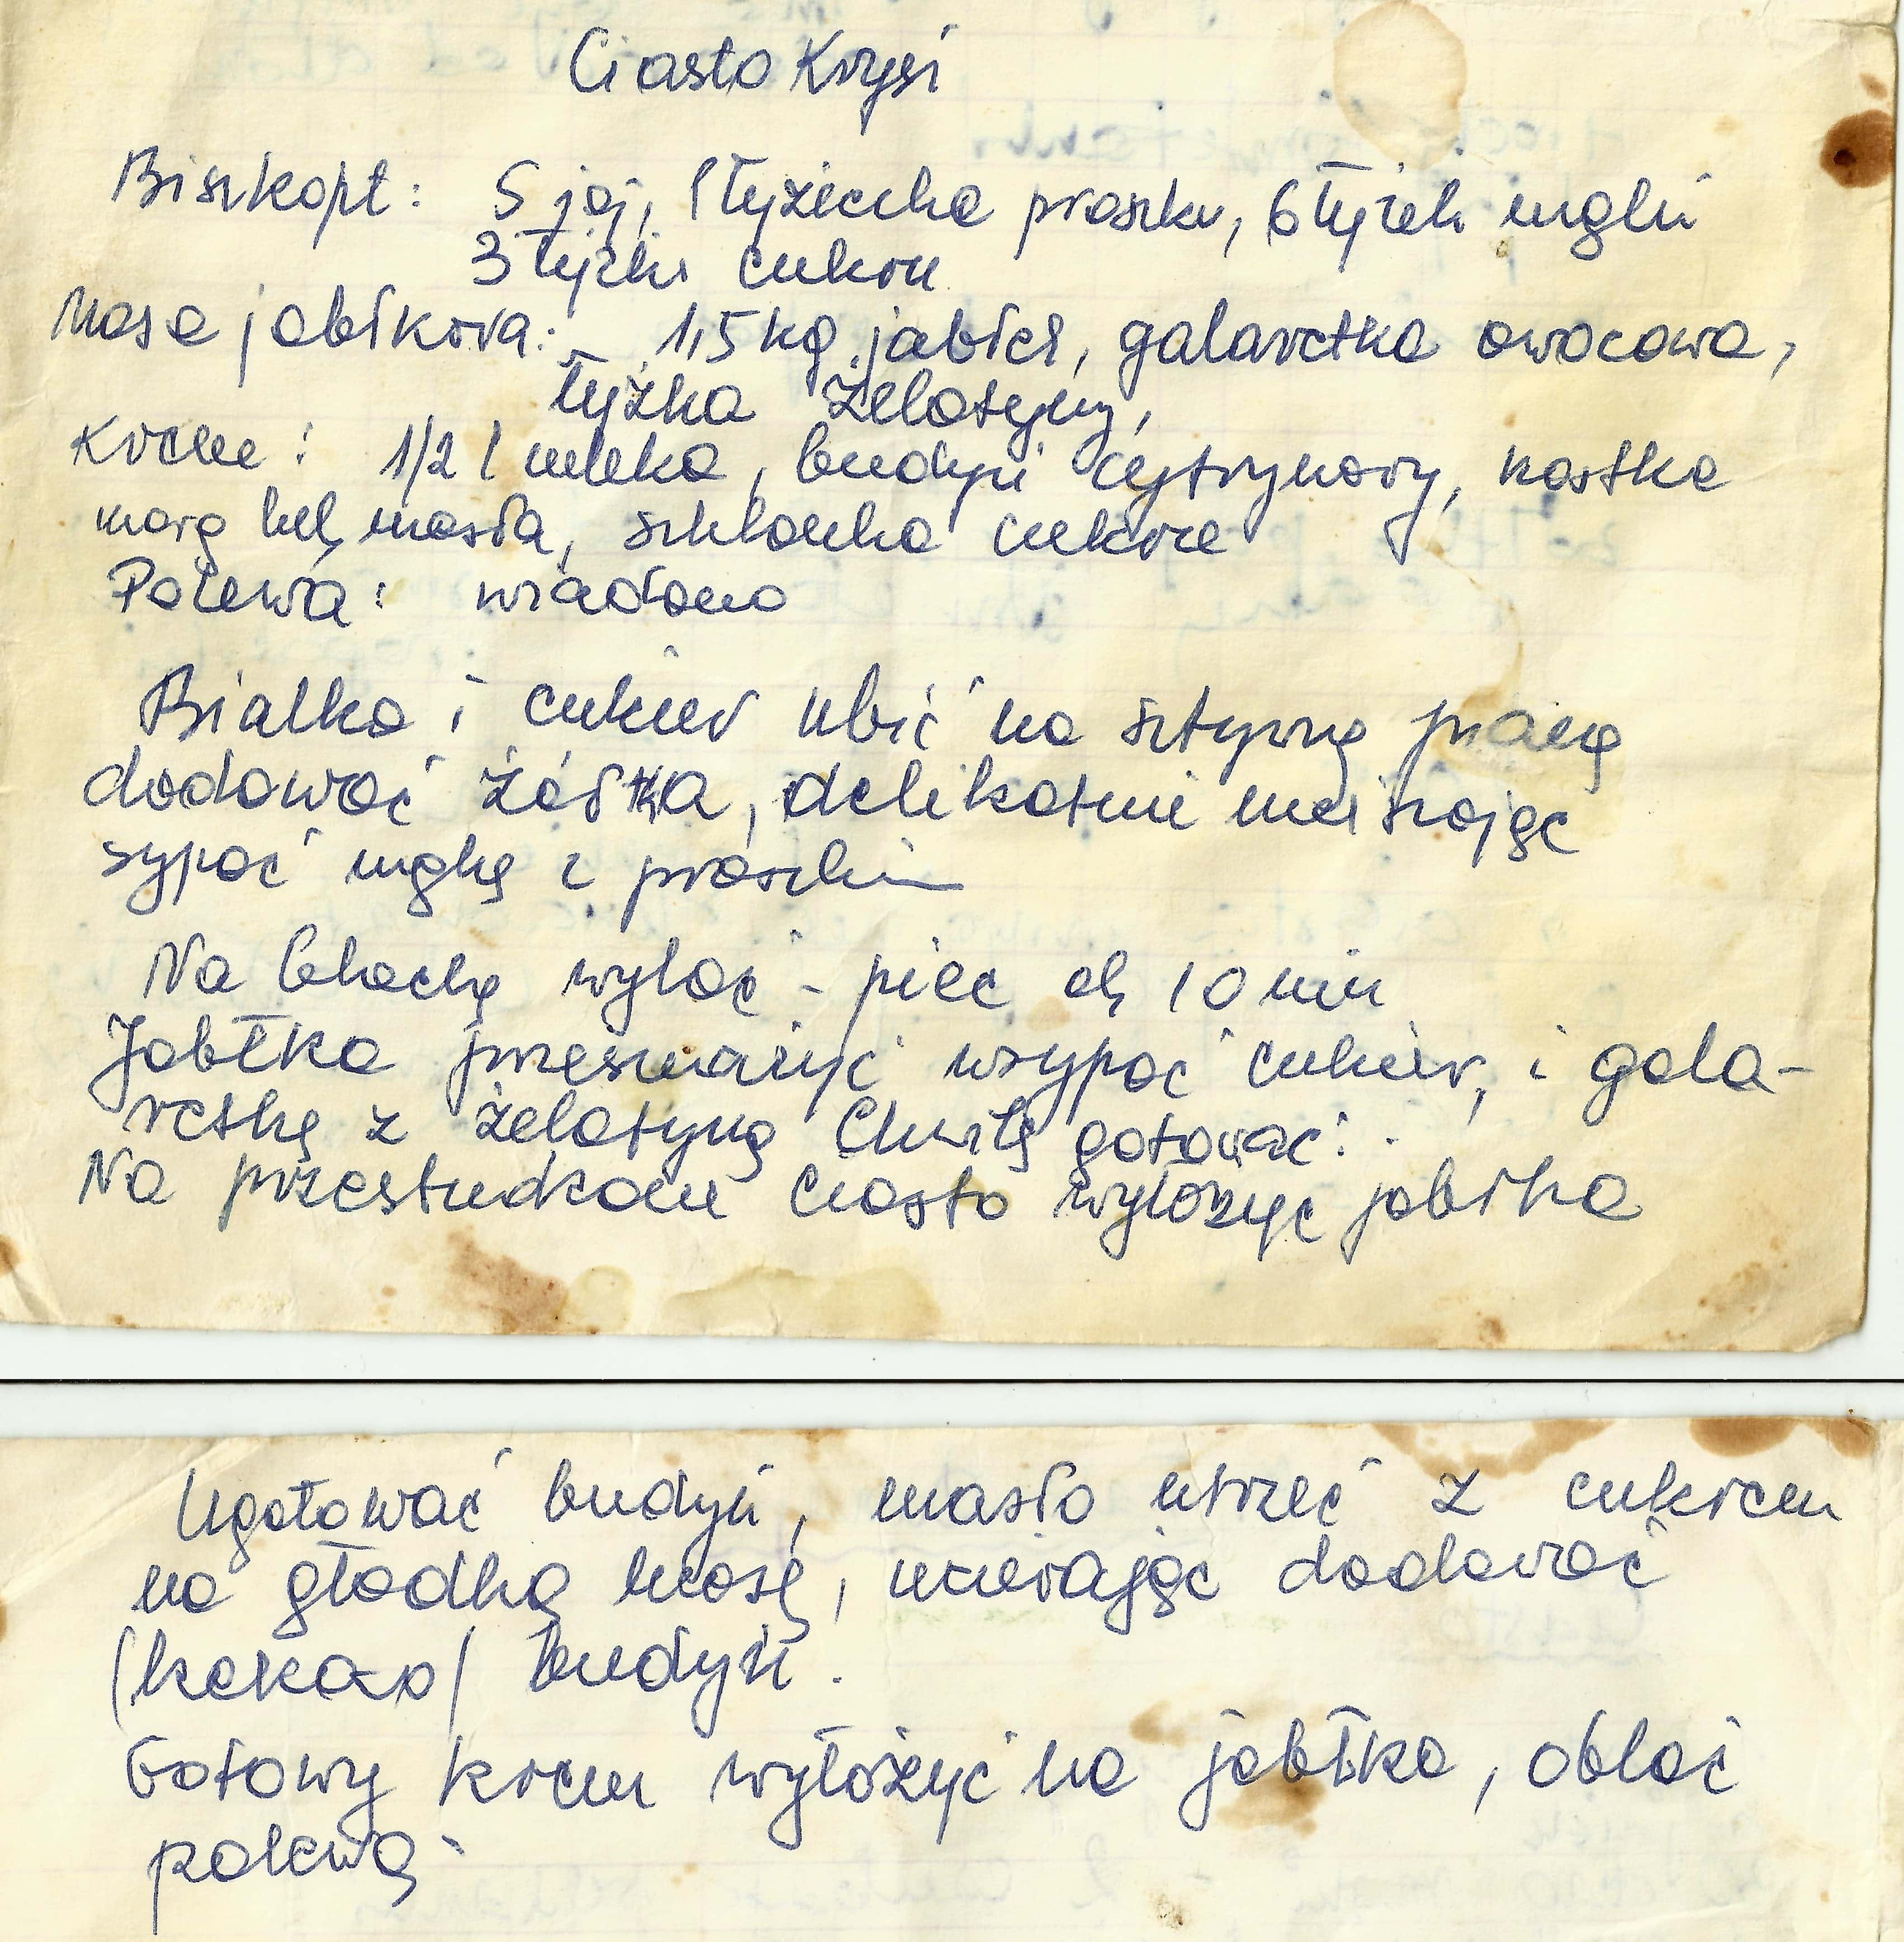 Ciasto Krysi
Biszkopt: 5 jaj, 1 łyżeczka proszku, 6 łyżek mąki
3 łyżki cukru
Masa jabłkowa: 1,5 kg jabłek, galaretka owocowa,
łyżka żelatyny,
Krem: 1/2 l mleka, budyń cytrynowy, kostka
marg lub masła, szklanka cukru
Polewa: wiadomo
Białka i cukier ubić na sztywną pianę
dodawać żółtka, delikatnie mieszając
sypać mąkę z proszkiem
Na blachę wylać - piec ok 10 min
Jabłka przesmażyć wsypać cukier, i gala-
retkę z żelatyną Chwilę gotować.
Na przestudzone ciasto wyłożyć jabłka
Ugotować budyń, masło utrzeć z cukrem
na gładką masę, ucierając dodawać
/kakao/ budyń.
Gotowy krem wyłożyć na jabłka, oblać
polewą